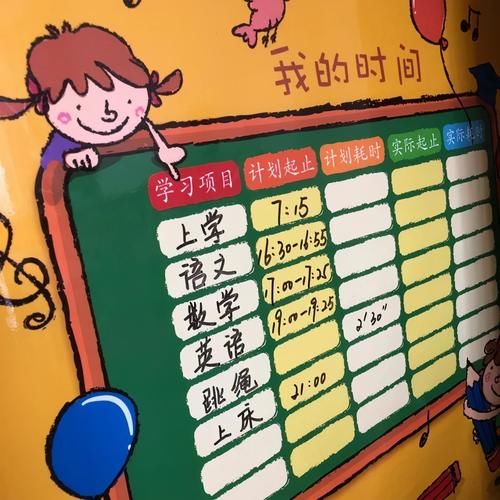 我的时间
学习项目 计划起止 计划耗时 实际起止 实际耗时
上学 7:15
语文 16:30-16:55
数学 17:00-17:25
英语 19:00-19:25
跳绳 2'30"
上床 21:00